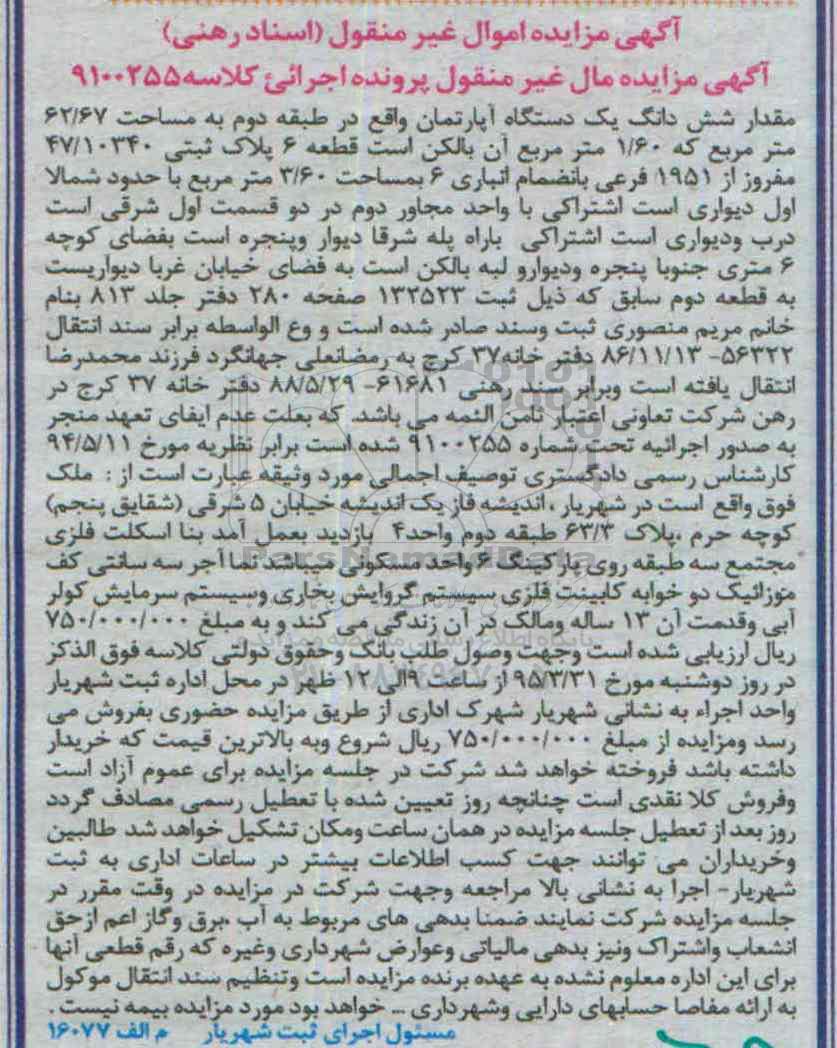 آگهی مزایده اموال غیر منقول (اسناد رهنی)
آگهی مزایده مال غیر منقول پرونده اجرائی کلاسه ۹۱۰۰۲۵۵
مقدار شش دانگ یک دستگاه آپارتمان واقع در طبقه دوم به مساحت ۶۲/۶۷
متر مربع که ۱/۶۰ متر مربع آن بالکن است قطعه ۶ پلاک ثبتی ۴۷/۱۰۳۴۰
مفروز از ۱۹۵۱ فرعی بانضمام انباری ۶ بمساحت ۳/۶۰ متر مربع با حدود شمالا
اول دیواری است اشتراکی با واحد مجاور دوم در دو قسمت اول شرقی است
درب ودیواری است اشتراکی باراه پله شرقا دیوار وپنجره است بفضای کوچه
۶ متری جنوبا پنجره ودیوارو لبه بالکن است به فضای خیابان غربا دیواریست
به قطعه دوم سابق که ذیل ثبت ۱۳۲۵۲۳ صفحه ۲۸۰ دفتر جلد ۸۱۳ بنام
خانم مریم منصوری ثبت وسند صادر شده است و وع الواسطه برابر سند انتقال
۵۶۳۲۲- ۸۶/۱۱/۱۳ دفتر خانه۳۷ کرج به رمضانعلی جهانگرد فرزند محمدرضا
انتقال یافته است وبرابر سند رهنی ۶۱۶۸۱- ۸۸/۵/۲۹ دفتر خانه ۳۷ کرج در
رهن شرکت تعاونی اعتبار ثامن الئمه می باشد. که بعلت عدم ایفای تعهد منجر
به صدور اجرائیه تحت شماره ۹۱۰۰۲۵۵ شده است برابر نظریه مورخ ۹۴/۵/۱۱
کارشناس رسمی دادگستری توصیف اجمالی مورد وثیقه عبارت است از : ملک
فوق واقع است در شهریار ،اندیشه فاز یک اندیشه خیابان ۵ شرقی (شقایق پنجم)
کوچه حرم ،پلاک ۶۳/۳ طبقه دوم واحد۴ بازدید بعمل آمد بنا اسکلت فلزی
مجتمع سه طبقه روی پارکینگ ۶ واحد مسکونی میباشد نما آجر سه سانتی کف
موزائیک دو خوابه کابینت فلزی سیستم گروایش بخاری وسیستم سرمایش کولر
آبی وقدمت آن ۱۳ ساله ومالک در آن زندگی می کند و به مبلغ ۷۵۰/۰۰۰/۰۰۰
ریال ارزیابی شده است وجهت وصول طلب بانک وحقوق دولتی کلاسه فوق الذکر
در روز دوشنبه مورخ ۹۵/۳/۳۱ از ساعت ۹الی ۱۲ ظهر در محل اداره ثبت شهریار
واحد اجراء به نشانی شهریار شهرک اداری از طریق مزایده حضوری بفروش می
رسد ومزایده از مبلغ ۷۵۰/۰۰۰/۰۰۰ ریال شروع وبه بالاترین قیمت که خریدار
داشته باشد فروخته خواهد شد شرکت در جلسه مزایده برای عموم آزاد است
وفروش کلا نقدی است چنانچه روز تعیین شده با تعطیل رسمی مصادف گردد
روز بعد از تعطیل جلسه مزایده در همان ساعت ومکان تشکیل خواهد شد طالبین
وخریداران می توانند جهت کسب اطلاعات بیشتر در ساعات اداری به ثبت
شهریار- اجرا به نشانی بالا مراجعه وجهت شرکت در مزایده در وقت مقرر در
جلسه مزایده شرکت نمایند ضمنا بدهی های مربوط به آب ،برق وگاز اعم ازحق
انشعاب واشتراک ونیز بدهی مالیاتی وعوارض شهرداری وغیره که رقم قطعی آنها
برای این اداره معلوم نشده به عهده برنده مزایده است وتنظیم سند انتقال موکول
به ارائه مفاصا حسابهای دارایی وشهرداری ... خواهد بود مورد مزایده بیمه نیست .
مسئول اجرای ثبت شهریار م الف ۱۶۰۷۷
ParsNamadData